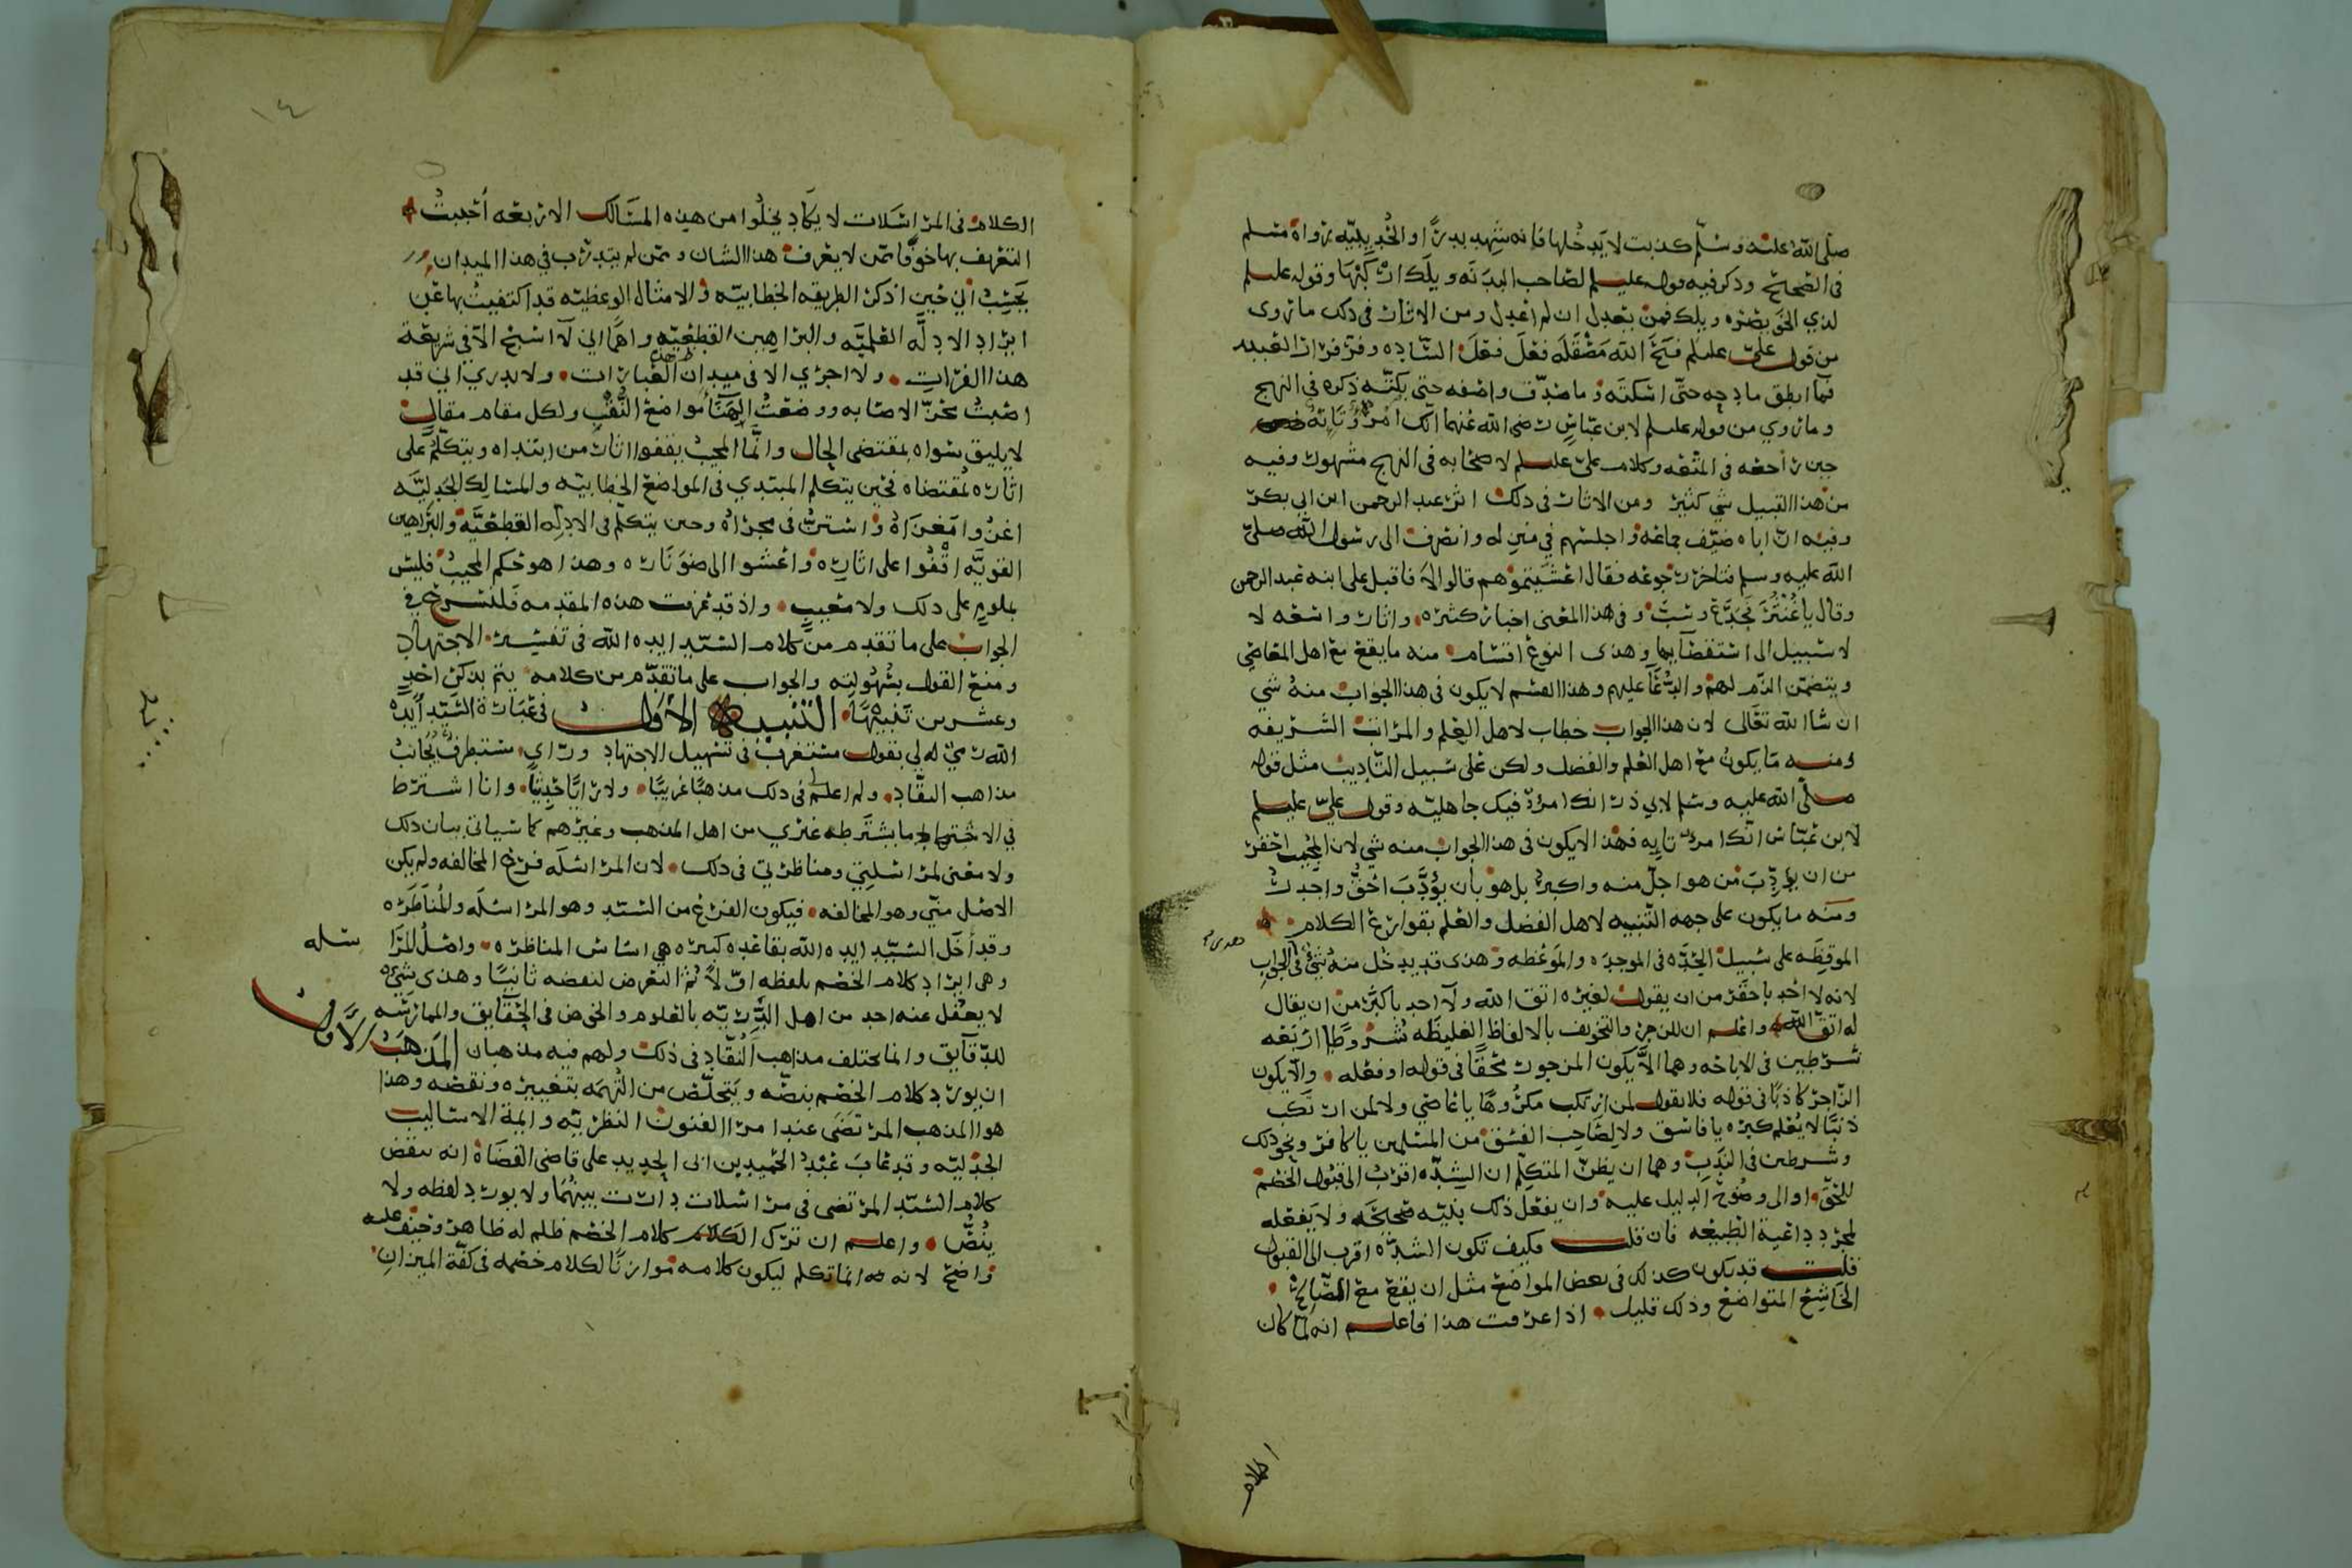 صلى الله عليه وسلم كذبت لا يدخلها فإنه شهد بدرًا والحديبيّه رواه مسلم
في الصحيح وذكر فيه قوله عليه السلم لصاحب البدنه ويلك اركبها وقوله عليلم
لذي الخويصره ويلك فمن يعدل ان لم اعدل ومن الاثار في ذلك ما روى
من قول علي عليلم قبح الله مصقله فعل فعل الساده وفر فرار العبيد
فما انطق مادحه حتى اسكته وما صدّق واصفه حتى بكته ذكره في النهج
وما روي من قوله عليلم لابن عباس رضي الله عنهما انك امرؤ تايه
حين راجعه في المتعه وكلام علي عليلم لاصحابه في النهج مشهور وفيه
من هذا القبيل شي كثير ومن الاثار في ذلك اثر عبد الرحمن ابن ابي بكر
وفيه ان اباه ضيّف جماعه واجلسهم في منزله وانصرف الى رسول الله صلى
الله عليه وسلم فتاخر رجوعه فقال اعشيتموهم قالوا لا فاقبل على ابنه عبد الرحمن
وقال يا غنثر فجدّع وسبّ وفي هذا المعنى اخبار كثيره واثار واسعه لا
لا سبيل الى استقصآيها وهذى النوع اقسام منه ما يقع مع اهل المعاصي
ويتضمّن الذم لهم والدعا عليهم وهذا القسم لا يكون في هذا الجواب منه شي
ان شا الله تعالى لان هذا الجواب خطاب لاهل العلم والمراتب الشريفه
ومنه ما يكون مع اهل العلم والفضل ولكن على سبيل التاديب مثل قوله
صلى الله عليه وسلم لابي ذر انك امرؤ فيك جاهليه وقول علي عليلم
لابن عباس انك امرؤ تايه فهذا لا يكون في هذا الجواب منه شي لان المجيب احقر
من ان يؤدب من هو اجلّ منه واكبر بل هو بان يؤدّب احقّ واجدر
ومنه ما يكون على جهه التنبيه لاهل الفضل والعلم بقوارع الكلام
الموقظه على سبيل الحدّه في الموجده والموعظه وهذى قد يدخل منه شي في الجواب
لانه لا احد باحقر من ان يقول لغيره اتق الله ولا احد باكبر من ان يقال
له اتق الله واعلم ان للزجر والتخويف بالالفاظ الغليظه شروطا اربعه
شرطين في الاباحه وهما الّا يكون المزجور محقا في قوله او فعله والّا يكون
الزّاجر كاذبًا في قوله فلا يقول لمن ارتكب مكروهًا يا عاصي ولا لمن ارتكب
ذنبًا لا يعلم كبره يا فاسق ولا لصاحب الفسق من المسلمين يا كافر ونحو ذلك
وشرطين في الندب وهما ان يظن المتكلم ان الشده اقرب الى قبول الخصم
للحق او الى وضوح الدليل عليه وان يفعل ذلك بنيه صحيحه ولا يفعله
لمجرد داعية الطبيعه فان قلت فكيف تكون الشدّه اقرب الى القبول
قلت قد يكون كذلك في بعض المواضع مثل ان يقع مع الصالح
الخاشع المتواضع وذلك قليل اذا عرفت هذا فاعلم انه لما كان
الكلام في المراسلات لا يكاد يخلوا من هذه المسالك الاربعه احببت
التعريف بها خوفًا ممن لا يعرف هذا الشان وممن لم يتدرب في هذا الميدان
يحسب اني حين اذكر الطريقه الخطابيه والامثال الوعظيه قد اكتفيت بها عن
ايراد الادله العلميه والبراهين القطعيه واهمًا اني لا اسبح الا في شريعة
هذا الفرات ولا اجري الا في ميدان هذه العبارات ولا يدري اني قد
اصبت محزّ الاصابه ووضعت الهنا مواضع النقب ولكل مقام مقال
لا يليق سواه بمقتضى الحال وانما المجيب يقفوا اثار من ابتداه ويتكلم على
اثاره لمقتضاه فحين يتكلم المبتدي في المواضع الخطابيه والمسالك الجدليه
اغزوا مغزاه واستر في مجراه وحين يتكلم في الادله القطعيه والبراهين
القويه اقفوا على اثاره واعشوا الى ضو ناره وهذا هو حكم المجيب فليس
بملوم على ذلك ولا معيب واذ قد تمزت هذه المقدمه فلنشرع في
الجواب على ما تقدم من كلام السيد ايده الله في تفسير الاجتهاد
ومنع القول بسهولته والجواب على ما تقدم من كلامه يتم بذكر احد
وعشرين تنبيهًا التنبيه الاول في عبارة السيد ايده
الله رمي له لي بقول مستغرب في تسهيل الاجتهاد وراي مستطرف يجانب
مذاهب النقّاد ولم اعلم في ذلك مذهبًا غريبًا ولا رايًا حديثًا وانا اشترط
في الاجتهاد ما يشترطه غيري من اهل المذهب وغيرهم كما سياتي بيان ذلك
ولا معنى لمراسلتي ومناظرتي في ذلك لان المراسله فرع المخالفه ولم يكن
الاصل منّي وهو المخالفه فيكون الفرع من السيد وهو المراسله والمناظره
وقد أخل السيّد ايده الله بقاعده كبيره هي اساس المناظره واصل المرا سله
وهي ايراد كلام الخصم بلفظه اوّلا ثم التعرض لنقضه ثانيًا وهذى شي
لا يعقل عنه احد من اهل الدّربّه بالعلوم والخوض في الحقايق والممارسه
للدقآيق وانما يختلف مذاهب النقاد في ذلك ولهم فيه مذهبان المذهب الاول
ان يورد كلام الخصم بنصّه ويتخلّص من التهمه بتغييره ونقصه وهذا
هو المذهب المرتضى عند امرا الفنون النظريه وايمة الاساليب
الجدليه وقد عاب عبد الحميد بن ابي الحديد على قاضي القضاة انه ينقض
كلام السيّد المرتضى في مراسلات دارت بينهما ولا يورد لفظه ولا
ينصّ واعلم ان ترك الكلام كلام الخصم ظلم له ظاهر وحيف عليه
واضح لانه انما تكلم ليكون كلامه موازنًا لكلام خصمه في كفّة الميزان